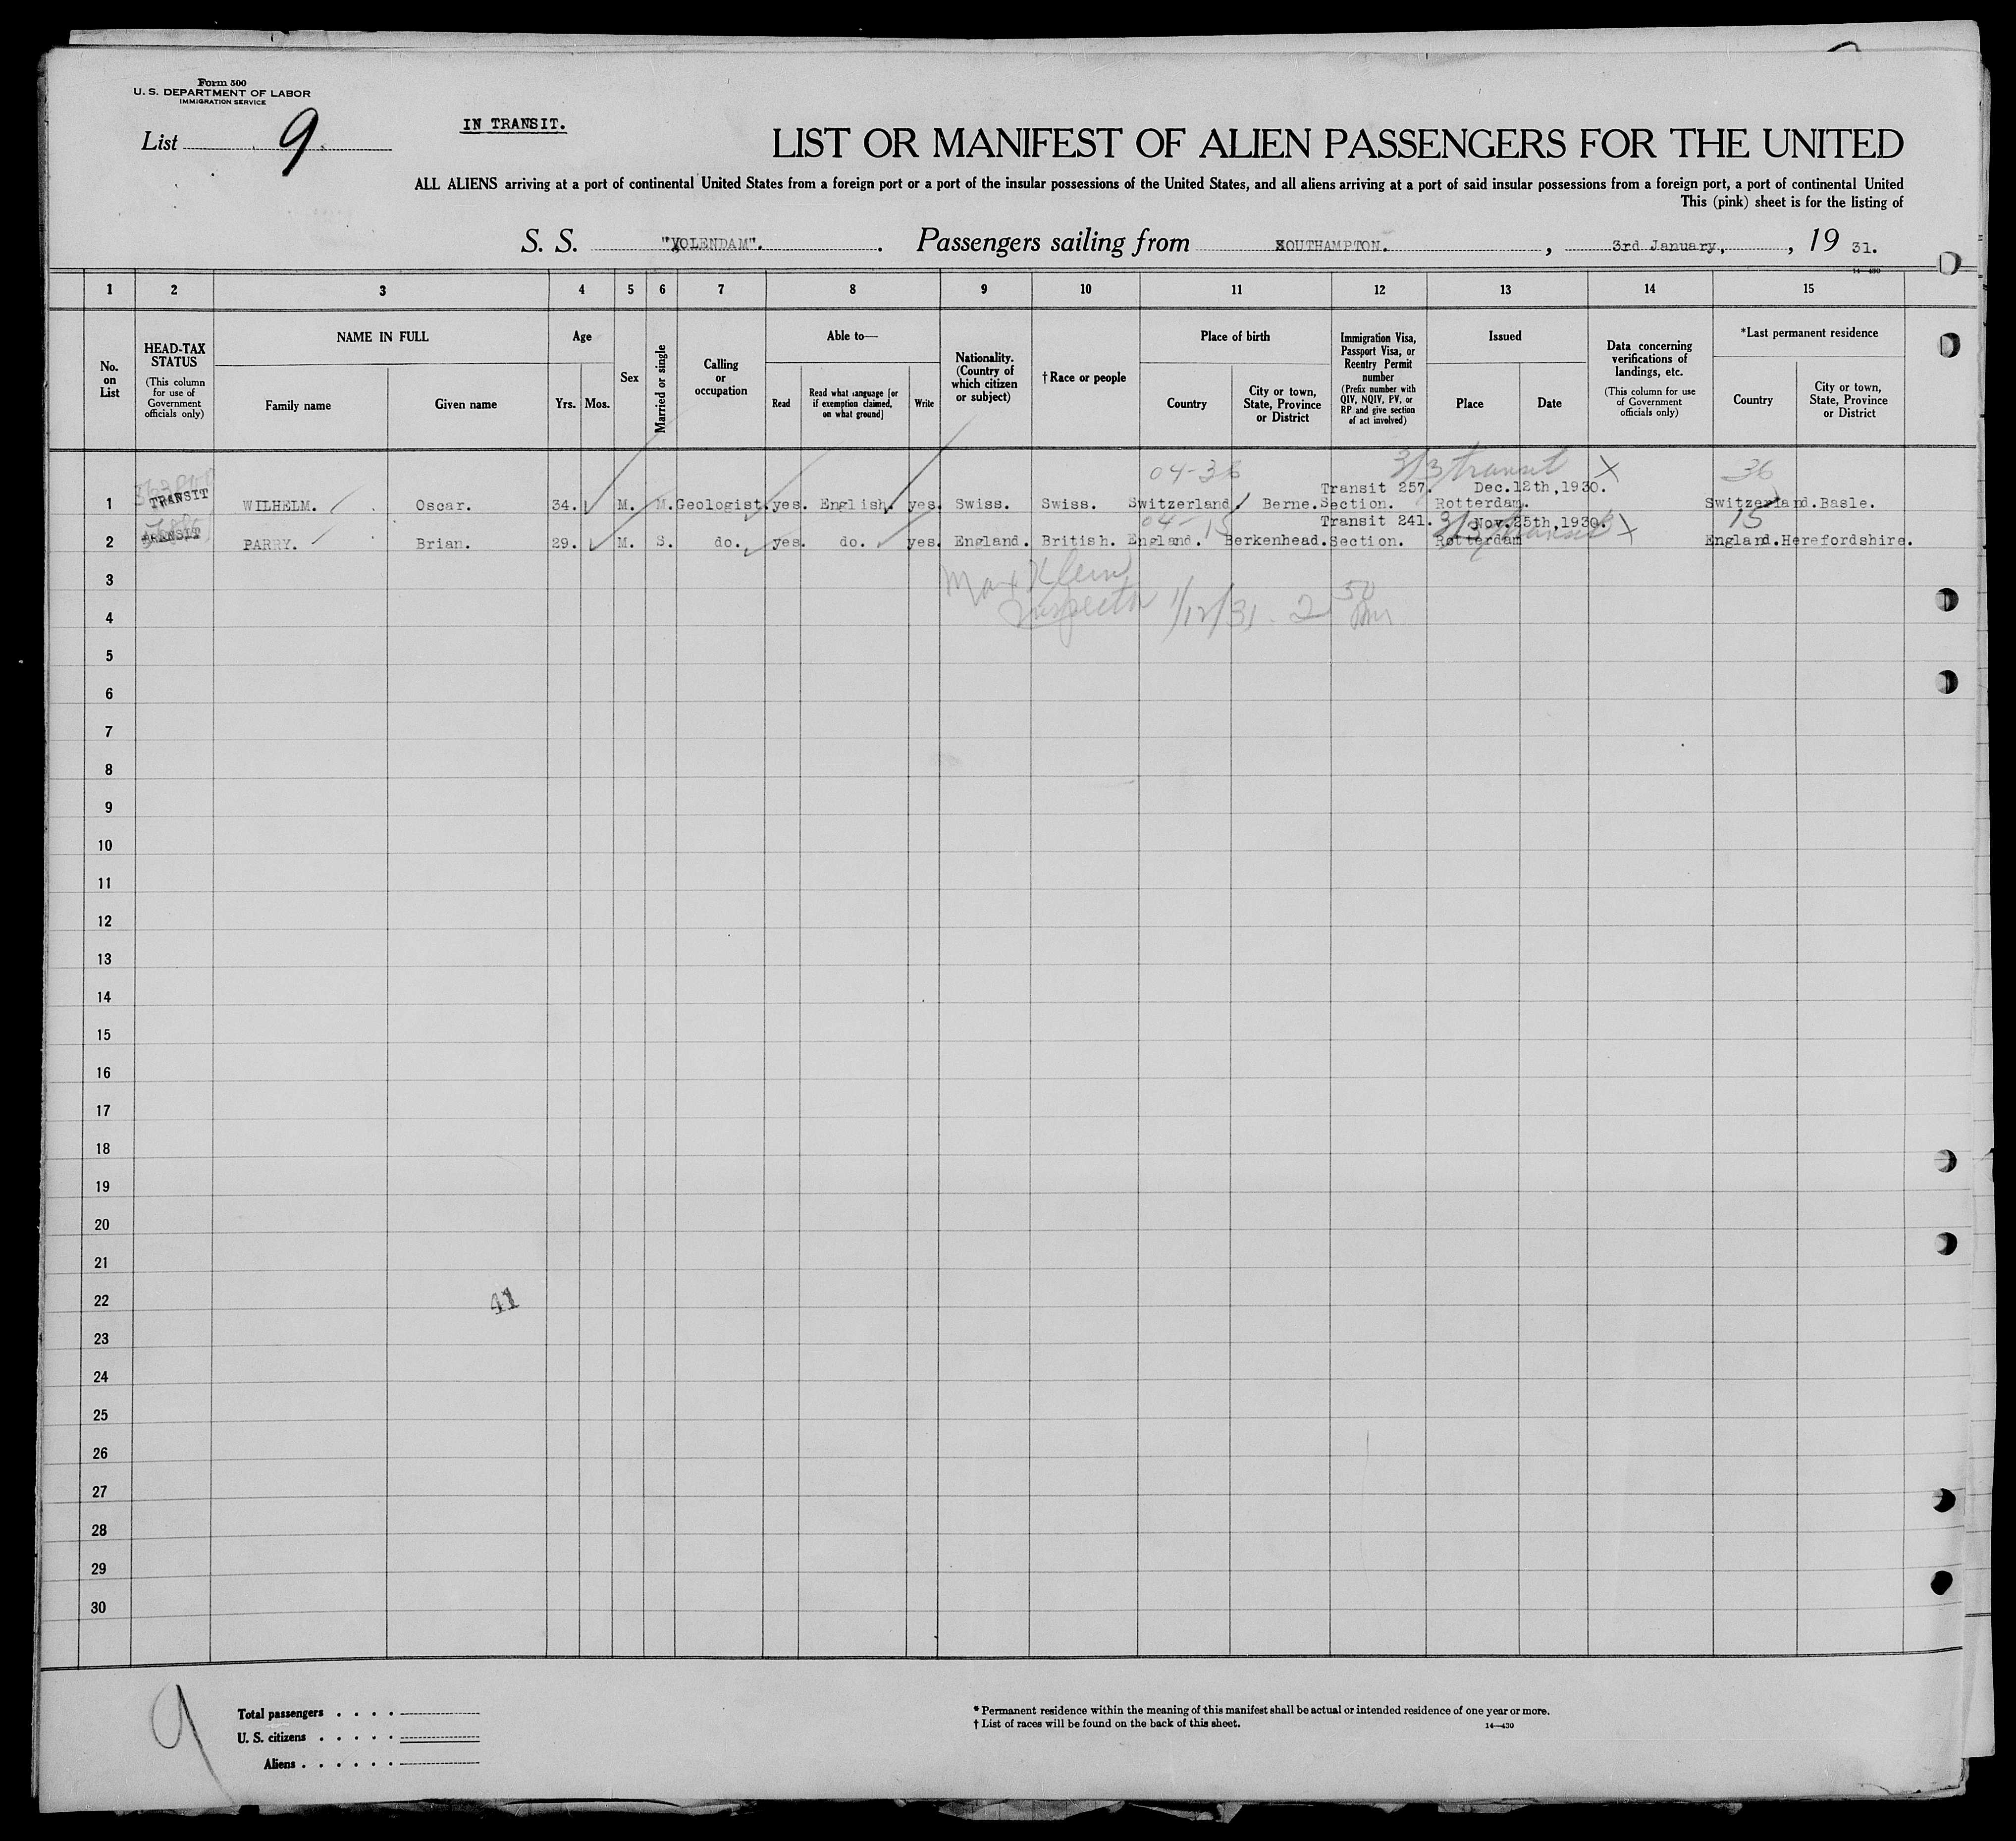 Form 500
U. S. DEPARTMENT OF LABOR
IMMIGRATION SERVICE
List 9.
IN TRANSIT.
LIST OR MANIFEST OF ALIEN PASSENGERS FOR THE UNITED
ALL ALIENS arriving at a port of continental United States from a foreign port or a port of the insular possessions of the United States, and all aliens arriving at a port of said insular possessions from a foreign port, a port of continental United
This (pink) sheet is for the listing of
S. S. "VOLENDAM". Passengers sailing from SOUTHAMPTON. , 3rd January, , 19 31.
14—430
1 2 3 4 5 6 7 8 9 10 11 12 13 14 15
No. on List
HEAD-TAX STATUS (This column for use of Government officials only)
NAME IN FULL
Family name
Given name
Age
Yrs. Mos.
Sex
Married or single
Calling or occupation
Able to—
Read
Read what language [or if exemption claimed, on what ground]
Write
Nationality. (Country of which citizen or subject)
† Race or people
Place of birth
Country
City or town, State, Province or District
Immigration Visa, Passport Visa, or Reentry Permit number (Prefix number with QIV, NQIV, PV, or RP and give section of act involved)
Issued
Place
Date
Data concerning verifications of landings, etc. (This column for use of Government officials only)
*Last permanent residence
Country
City or town, State, Province or District
04-36 3/3 transit X 36
Transit 257. Dec.12th,1930.
1 TRANSIT WILHELM. Oscar. 34. M. M. Geologist. yes. English. yes. Swiss. Swiss. Switzerland. Berne. Section. Rotterdam. Switzerland. Basle.
04-15 Transit 241. 3/3 transit Nov.25th,1930. X 15
2 TRANSIT PARRY. Brian. 29. M. S. do. yes. do. yes. England. British. England. Berkenhead. Section. Rotterdam England. Herefordshire.
Max Klein
Inspector 1/12/31. 2 50 Pm
3
4
5
6
7
8
9
10
11
12
13
14
15
16
17
18
19
20
21
22
41
23
24
25
26
27
28
29
30
9
Total passengers . . . .
U. S. citizens . . . . .
Aliens . . . . . .
* Permanent residence within the meaning of this manifest shall be actual or intended residence of one year or more.
† List of races will be found on the back of this sheet.
14—430